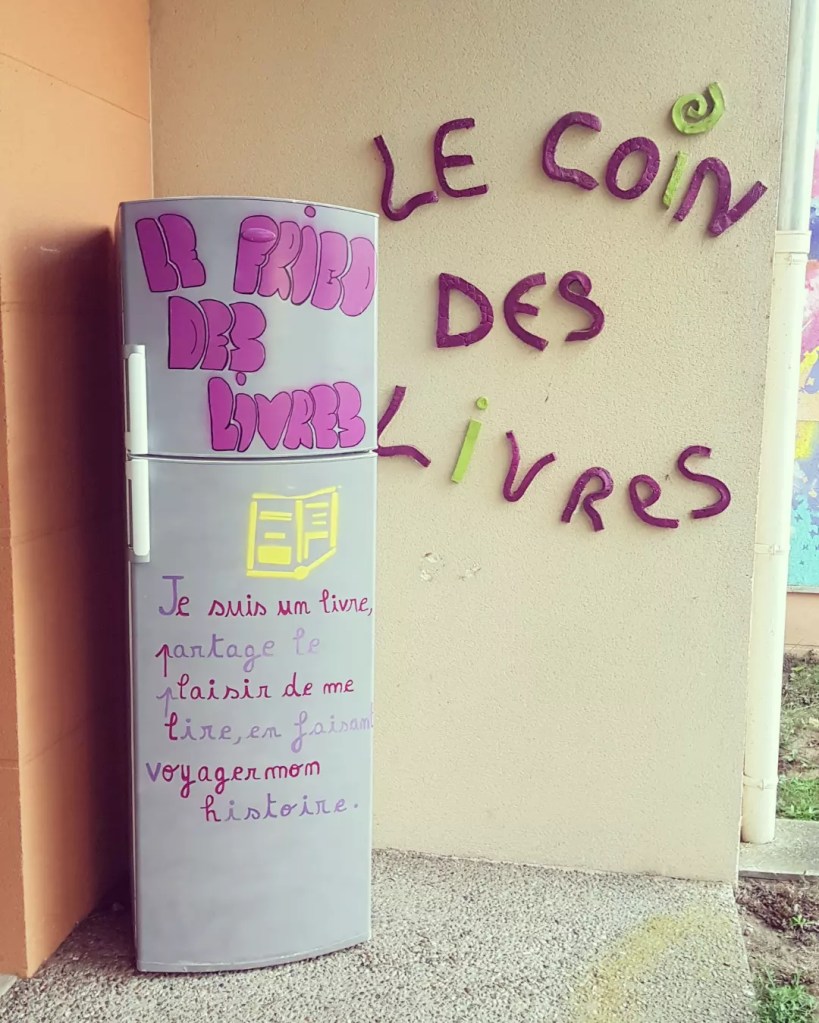 LE FRIGO
DES
LIVRES
Je suis un livre,
partage le
plaisir de me
lire, en faisant
voyager mon
histoire.
LE COIN
DES
LiVReS